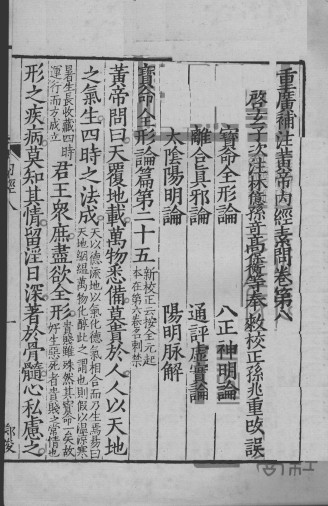 重廣補注黃帝內經素問卷第八
啓玄子次注林億孫奇高保衡等奉敕校正孫兆重改誤
寶命全形論 八正神明論
離合真邪論 通評虛實論
太陰陽明論 陽明脉解
寶命全形論篇第二十五 新校正云按全元起本在第六卷名刺禁
黃帝問曰天覆地載萬物悉備莫貴於人人以天地
之氣生四時之法成 天以德流地以氣化德氣相合而乃生焉易曰天地絪縕萬物化醇此之謂也則假以溫涼寒
暑生長收藏四時運行而方成立 君王眾庶盡欲全形 貴賤雖殊然其寶命一矣故好生惡死者貴賤之常情也
形之疾病莫知其情留淫日深著於骨髓心私慮之